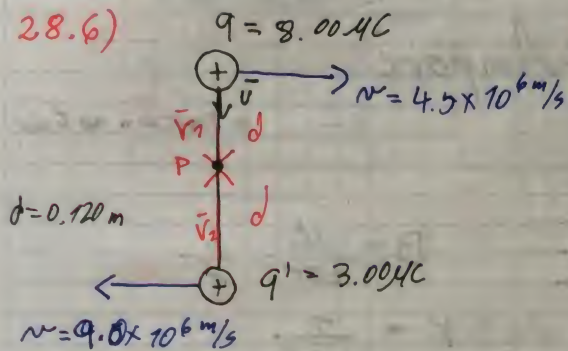 28.6)
q = 8.00 μC
+
v̄
v = 4.5 × 10⁶ m/s
r̄₁ d
P
d = 0.120 m
r̄₂ d
+
q' = 3.00 μC
v = 9.0 × 10⁶ m/s